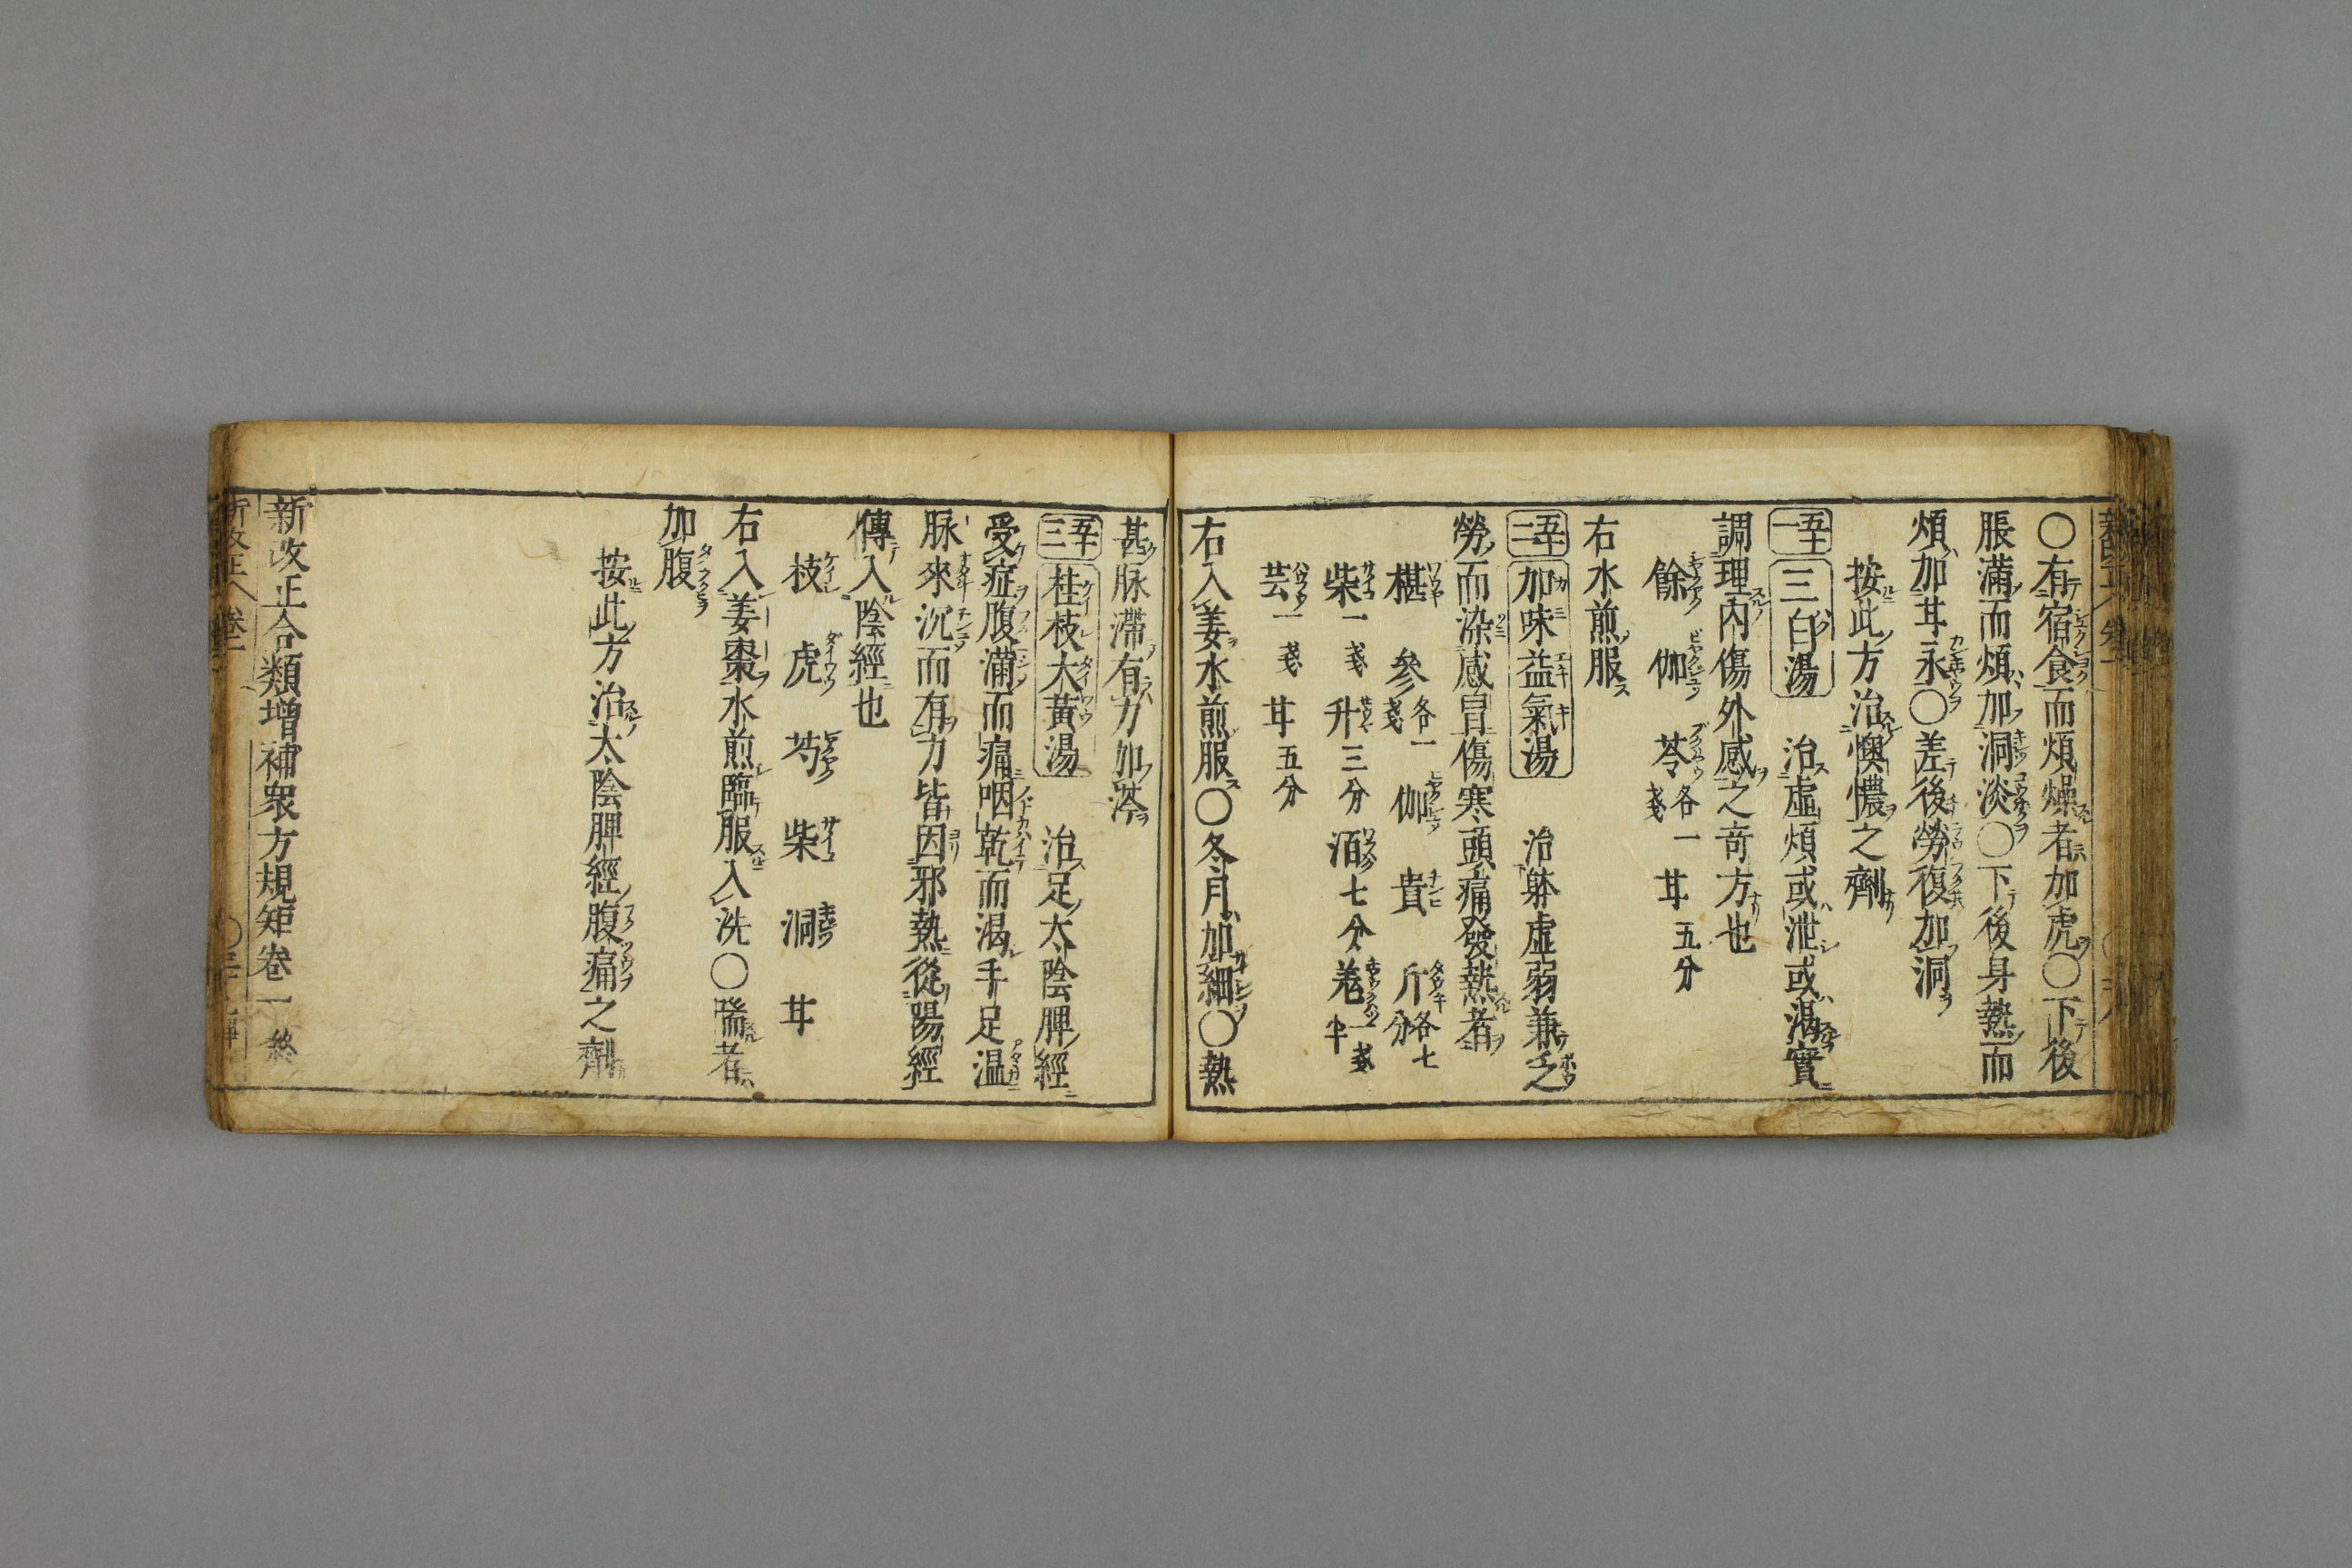 〇有宿食而煩燥者加虎〇下後
脹滿而煩加洞淡〇下後身熱而
煩加甘永〇差後勞復加洞
按此方治懊憹之劑
五十一 三白湯 治虛煩或泄或渴實
調理內傷外感之奇方也
餘 伽 苓各一戔 甘五分
右水煎服
五十二 加味益氣湯 治躰虛弱兼乏
勞而染感冒傷寒頭痛發熱者
椹 參各一戔 伽 貴 斤各七分
柴一戔 升三分 洦七分 卷一戔半
芸一戔 甘五分
右入姜水煎服〇冬月加細〇熱
甚脉滯有力加芩
五十三 桂枝大黃湯 治足太陰脾經
受症腹滿而痛咽乾而渴手足温
脉來沉而有力皆因邪熱從陽經
傳入陰經也
枝 虎 芍 柴 洞 甘
右入姜棗水煎臨服入洗〇喘者
加腹
按此方治太陰脾經腹痛之劑
新改正合類增補衆方規矩卷一終